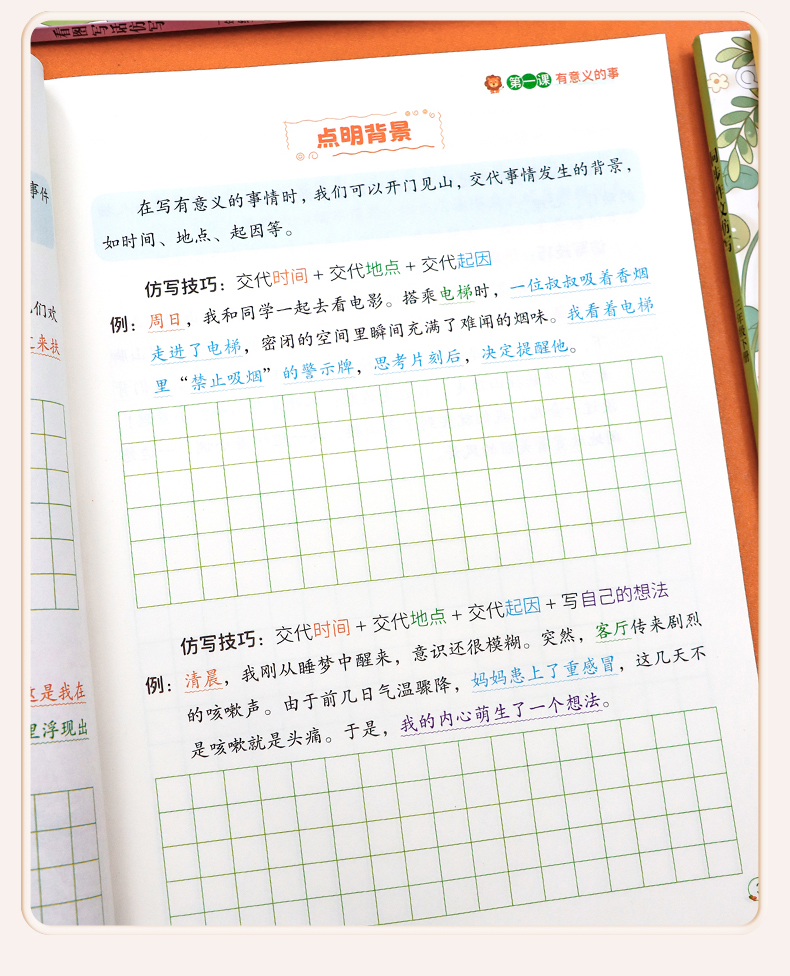 看图写话仿写
第一课 有意义的事
点明背景
在写有意义的事情时，我们可以开门见山，交代事情发生的背景，
如时间、地点、起因等。
仿写技巧：交代时间+交代地点+交代起因
例：周日，我和同学一起去看电影。搭乘电梯时，一位叔叔吸着香烟
走进了电梯，密闭的空间里瞬间充满了难闻的烟味。我看着电梯
里“禁止吸烟”的警示牌，思考片刻后，决定提醒他。
仿写技巧：交代时间+交代地点+交代起因+写自己的想法
例：清晨，我刚从睡梦中醒来，意识还很模糊。突然，客厅传来剧烈
的咳嗽声。由于前几日气温骤降，妈妈患上了重感冒，这几天不
是咳嗽就是头痛。于是，我的内心萌生了一个想法。
事件
们欢
来扶
这是我在
里浮现出
三年级下册